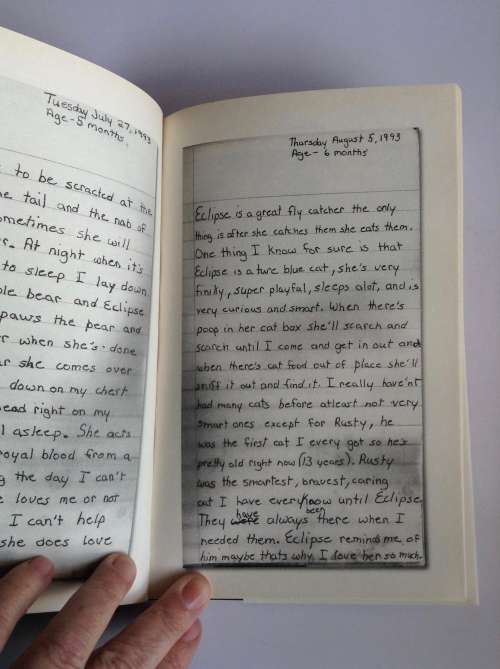 Tuesday July 27, 1993
Age-5 months.
to be scracted at the
tail and the nab of
sometimes she will
At night when it's
to sleep I lay down
bear and Eclipse
paws the bear and
when she's done
she comes over
down on my chest
head right on my
asleep. She acts
royal blood from a
the day I can't
loves me or not
I can't help
she does love
Thursday August 5, 1993
Age - 6 months
Eclipse is a great fly catcher the only
thing is after she catches them she eats them.
One thing I know for sure is that
Eclipse is a ture blue cat, she's very
finiky, super playful, sleeps alot, and is
very curious and smart. When there's
poop in her cat box she'll scarch and
scarch until I come and get in out and
when there's cat food out of place she'll
sniff it out and find it. I really have'nt
had many cats before atleast not very
smart ones except for Rusty, he
was the first cat I every got so he's
pretty old right now (13 years). Rusty
was the smartest, bravest, caring
cat I have every know until Eclipse.
They have always been there when I
needed them. Eclipse reminds me of
him maybe thats why I love her so much.